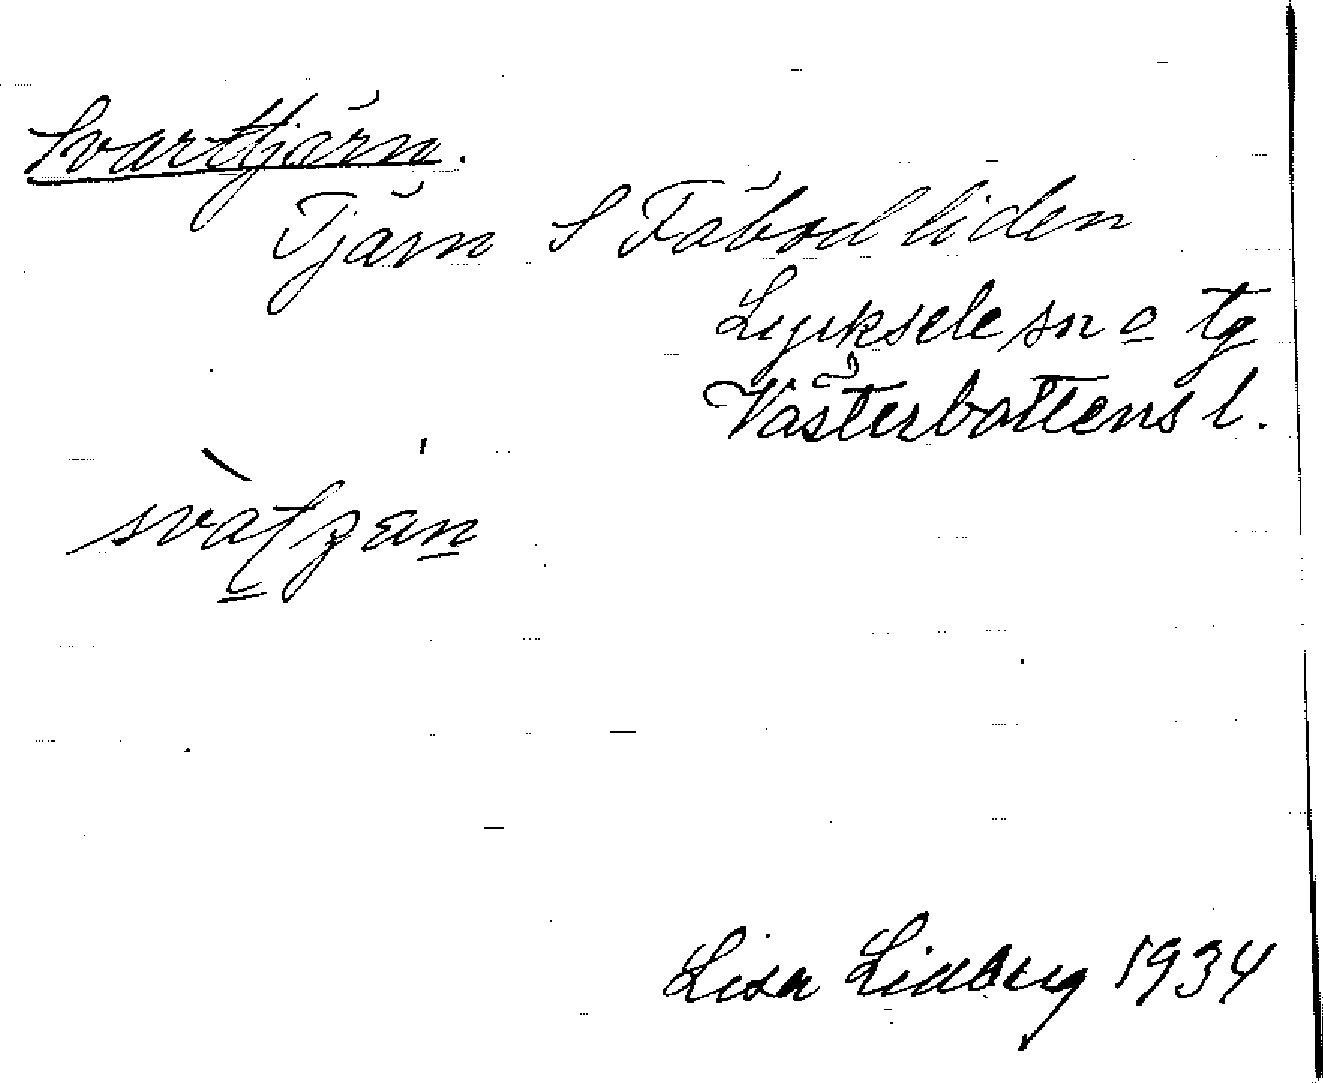 Svarttjärn.
Tjärn S Fäbodliden
Lycksele sn o tg
Västerbottens l.
Lisa Lidberg 1934